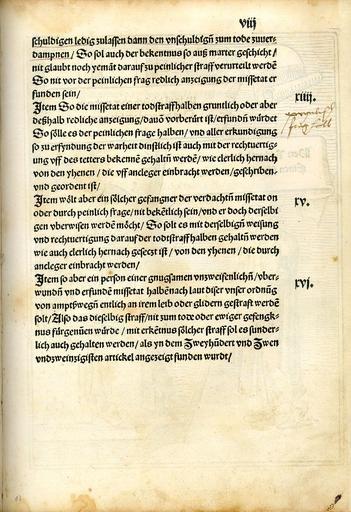 viij
schuldigen ledig zulassen dann den vnschuldigñ zum tode zuuer-
dampnen/ So sol auch der bekentnus so auß marter geschicht/
nit glaubt noch yemãt darauf zu peinlicher straff verurteilt werdẽ
So nit vor der peinlichen frag redlich anzeigung der missetat er
funden sein/
Item So die missetat einer todstraff halben gruntlich oder aber xiiij.
deßhalb redliche anzeigung/ dauõ vorberürt ist/ erfundñ würdet
So sölle es der peinlichen frage halben/ vnd aller erkundigung
so zu erfyndung der warheit dinstlich ist auch mit der rechtuertig-
ung vff des tetters bekennẽ gehaltñ werdẽ/ wie clerlich hernach
von den yhenen/ die vff ancleger einbracht werden/ geschriben-
vnd geordent ist/
Item wölt aber ein sölcher gefangner der verdachtñ missetat on xv.
oder durch peinlich frage/ nit bekẽtlich sein/ vnd er doch derselbi
gen vberwisen werdẽ möcht/ So solt es mit derselbigñ weisung
vnd rechtuertigung darauf der todstraff halben gehaltñ werden
wie auch clerlich hernach gesetzt ist/ von den yhenen/ die durch
ancleger einbracht werden/
Item so aber ein person einer gnugsamen vnzweifenlichñ/ vber- xvj.
wundñ vnd erfundẽ missetat halbẽ nach laut diser vnser ordnũg
von amptßwegñ entlich an irem leib oder glidern gestraft werdẽ
solt/ Also das dieselbig straff/ nit zum tode oder ewiger gefengk-
nus fürgenũen würde/ mit erkẽtnus sölcher straff sol es sunder-
lich auch gehalten werden/ als yn dem Zweyhũdert vnd Zwen
vndzweinzigisten artickel angezeigt funden wurdt/